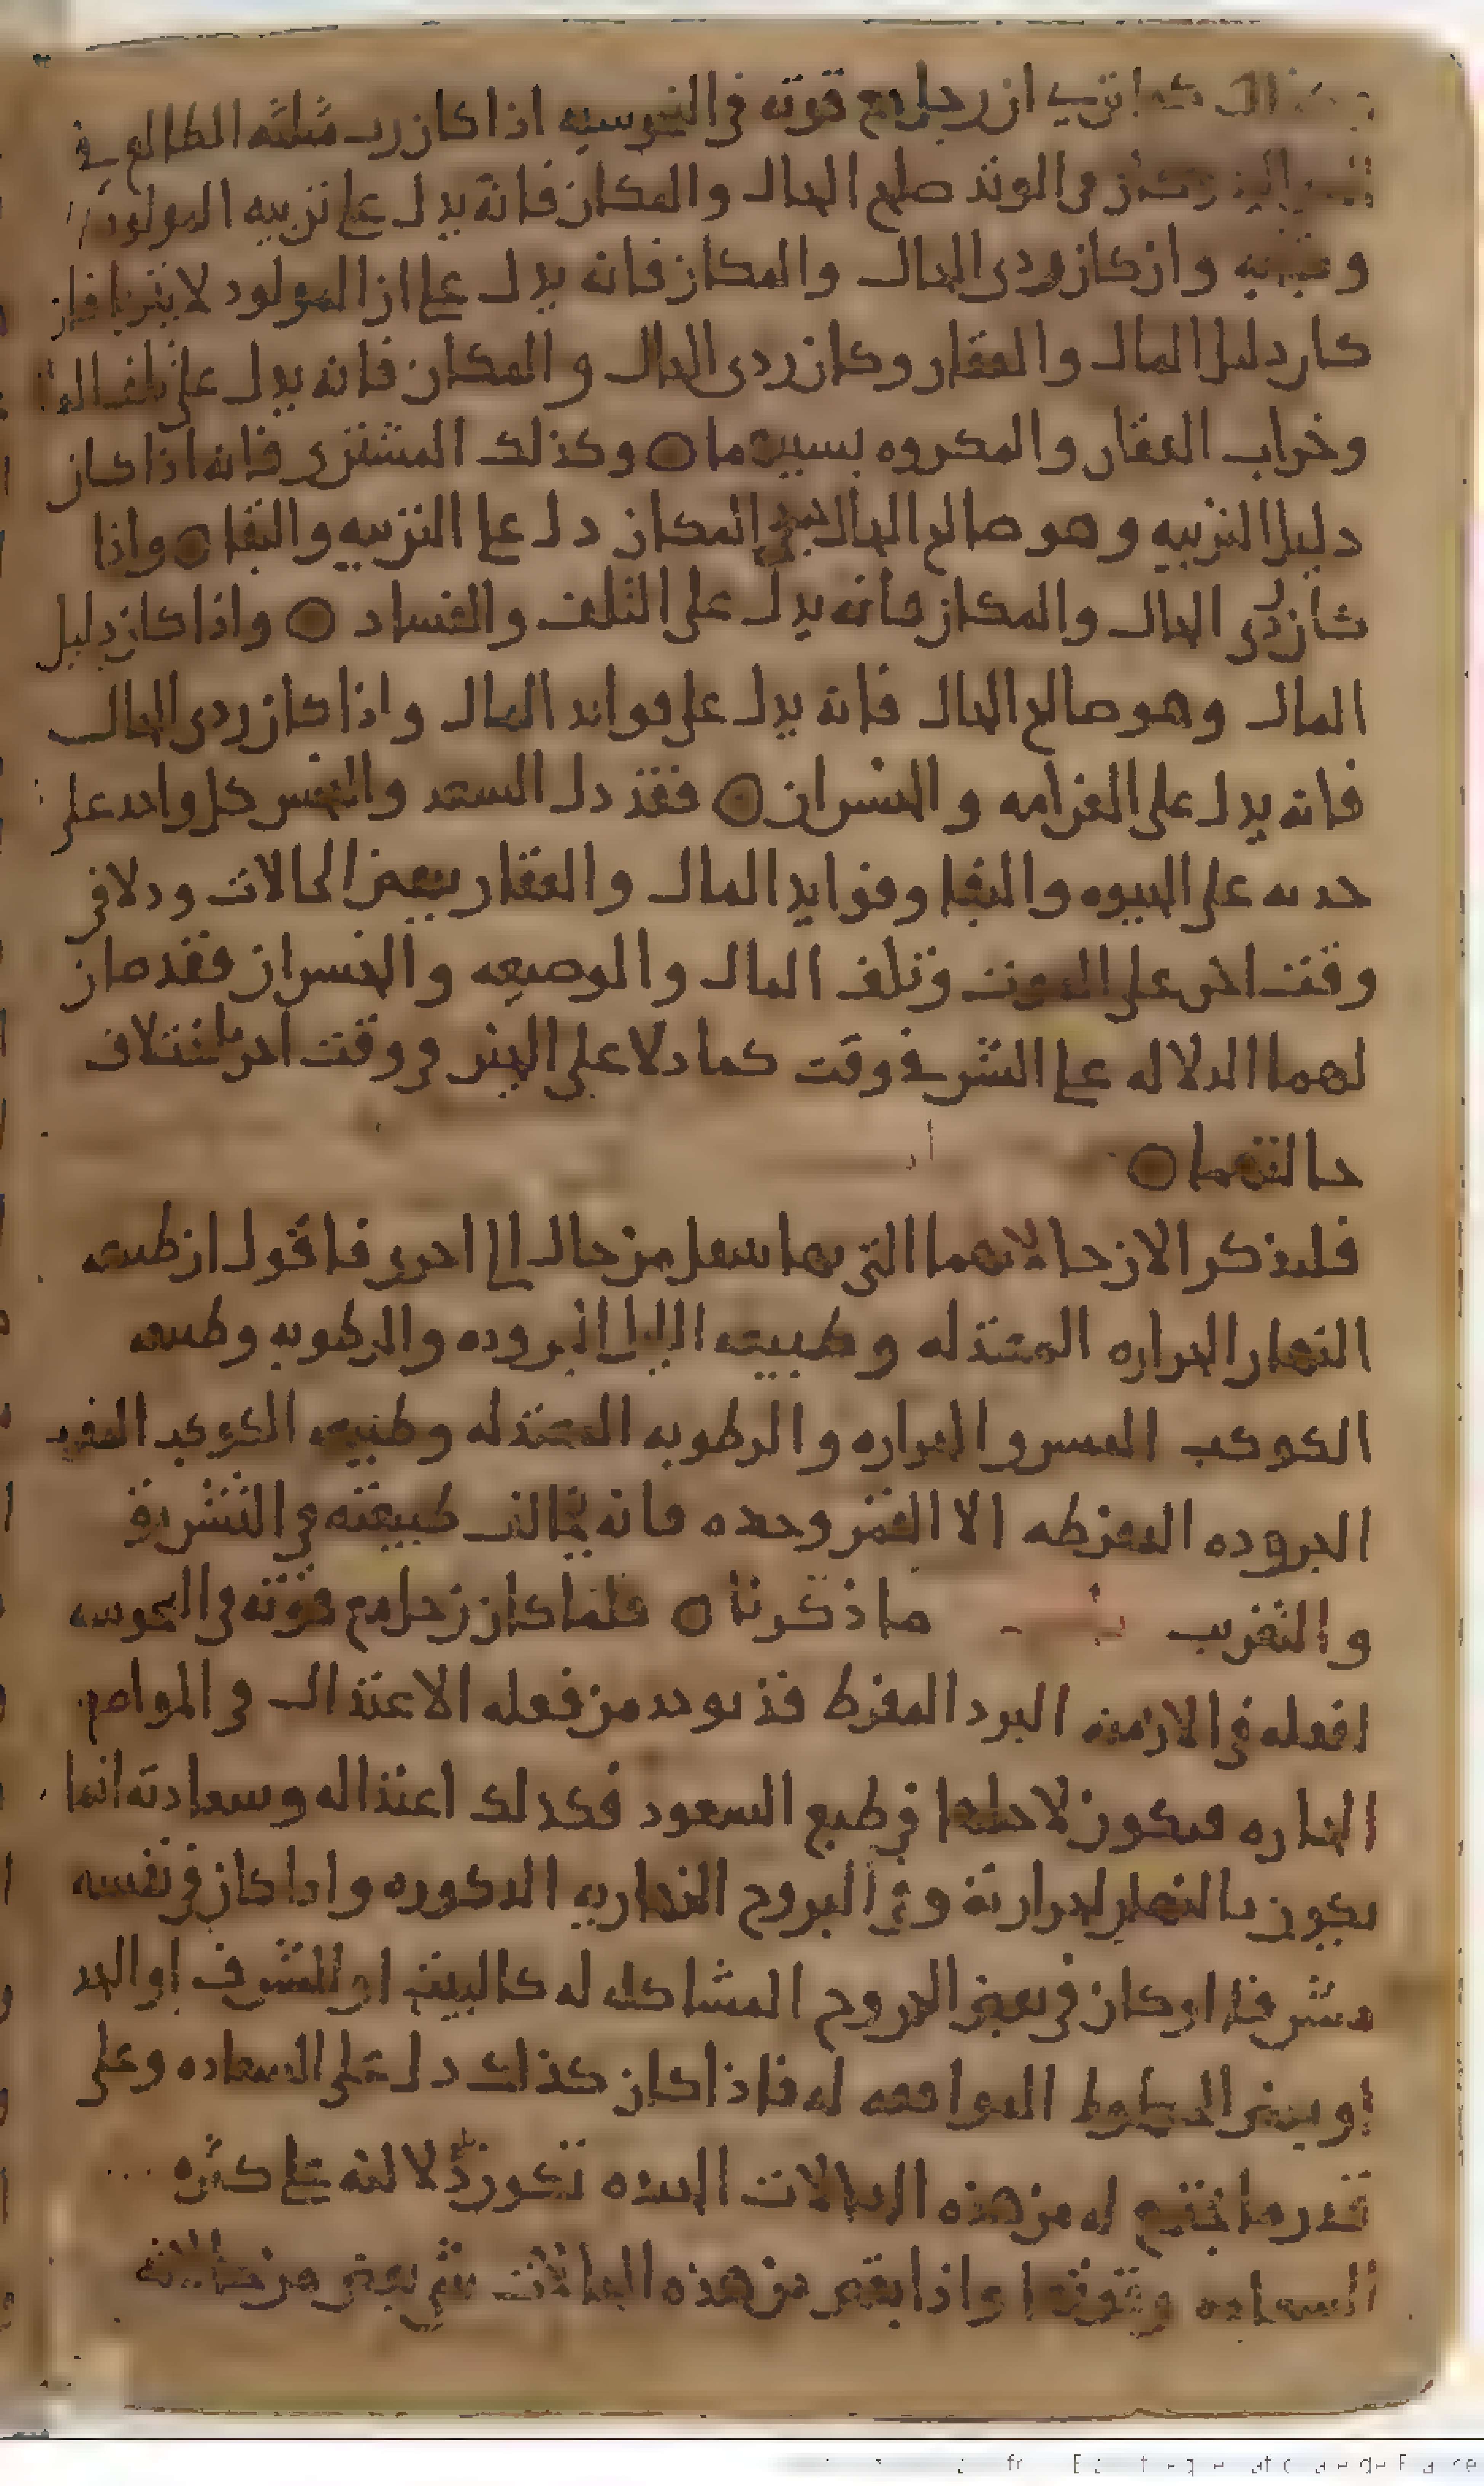 كما ترى ان زحل مع قوته في النحوسيه اذا كان رب مثلثه الطالع في
في الوتد صالح الحال والمكان فانه يدل على تربيه المولود
وان كان ردى الحال والمكان فانه يدل على ان المولود لا يتربا فان
كان دليل المال والعقار وكان ردى الحال والمكان فانه يدل على تلف المال
وخراب العقار والمكروه بسببهما ○ وكذلك المشترى فانه اذا كان
دليل التربيه وهو صالح الحال المكان دل على التربيه والبقا ○ واذا
كان ردى الحال والمكان فانه يدل على التلف والفساد ○ واذا كان دليل
المال وهو صالح الحال فانه يدل على فوائد المال واذا كان ردى الحال
فانه يدل على الغرامه والخسران ○ فقد دل السعد والنحس كل واحد على
حدته على الحيوه والبقا وفوايد المال والعقار ببعض الحالات ودلا في
وقت اخر على الموت وتلف المال والوضيعه والخسران فقد صار
لهما الدلاله على الشر في وقت كما دلا على الخير في وقت اخر باختلاف
حالتهما ○
فلنذكر الان حالاتهما التي بها تنتقل من حال الى اخرى فاقول ان طبيعه
النهار الحراره المعتدله وطبيعه الليل البروده والرطوبه وطبيعه
الكوكب والحراره والرطوبه المعتدله وطبيعه الكوكب
البروده المفرطه الا القمر وحده فانه تخالف طبيعته في التشريق
والتغريب ما ذكرنا ○ فلما كان زحل مع قوته في النحوسه
فعله في الازمنه البرد المفرط قد يوجد من فعله الاعتدال في المواضع
الحاره فيكون لا في طبع السعود فكذلك اعتداله وسعادته انما
يكون بالنهار لحرارته وفي البروج النهاريه الذكوره واذا كان في نفسه
مشرقا او كان في بعض البروج المشاكله له كالبيت او الشرف او الحد
او بعض الحظوظ الموافقه له فاذا كان كذلك دل على السعاده وعلى
قدر ما يجتمع له من هذه الحالات الجيده تكون دلالته على كثره
السعاده وقوتها واذا نقص من هذه الحالات شي نقص من